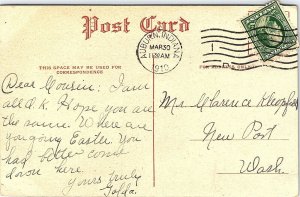 Post Card
THIS SPACE MAY BE USED FOR
CORRESPONDENCE
AUBURN, INDIANA
MAR 30
11 30 AM
1910
Dear Cousin: I am
all O.K. Hope you are
the same. Where are
you going Easter. You
had better come
down here.
Yours truly
Golda.
Mr. Clarence
New Port
Wash.